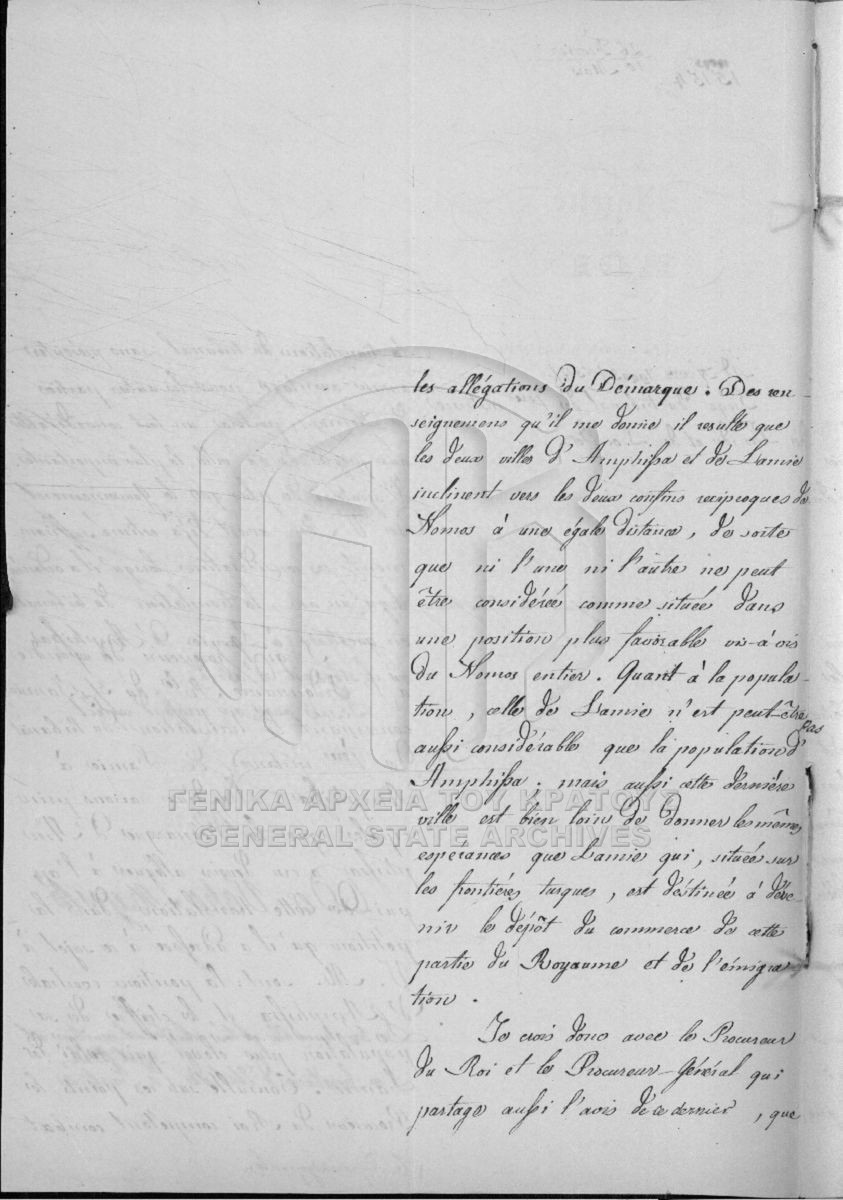 les allégations du Démarque. Des ren-
seignemens qu'il me donne il resulte que
les deux villes d'Amphissa et de Lamie
inclinent vers les deux confins reciproques du
Nomos à une égale distance, de sorte
que ni l'une ni l'autre ne peut
être considérée comme située dans
une position plus favorable vis-à-vis
du Nomos entier. Quant à la popula-
tion, celle de Lamie n'est peut-être pas
aussi considérable que la population d'
Amphissa. mais aussi cette dernière
ville est bien loin de donner les mêmes
espérances que Lamie qui, située sur
les frontières turques, est destinée à deve-
nir le dépôt du commerce de cette
partie du Royaume et de l'émigra-
tion.
Je crois donc avec le Procureur
du Roi et le Procureur-Général qui
partage aussi l'avis de ce dernier, que
ΓΕΝΙΚΑ ΑΡΧΕΙΑ ΤΟΥ ΚΡΑΤΟΥΣ
GENERAL STATE ARCHIVES